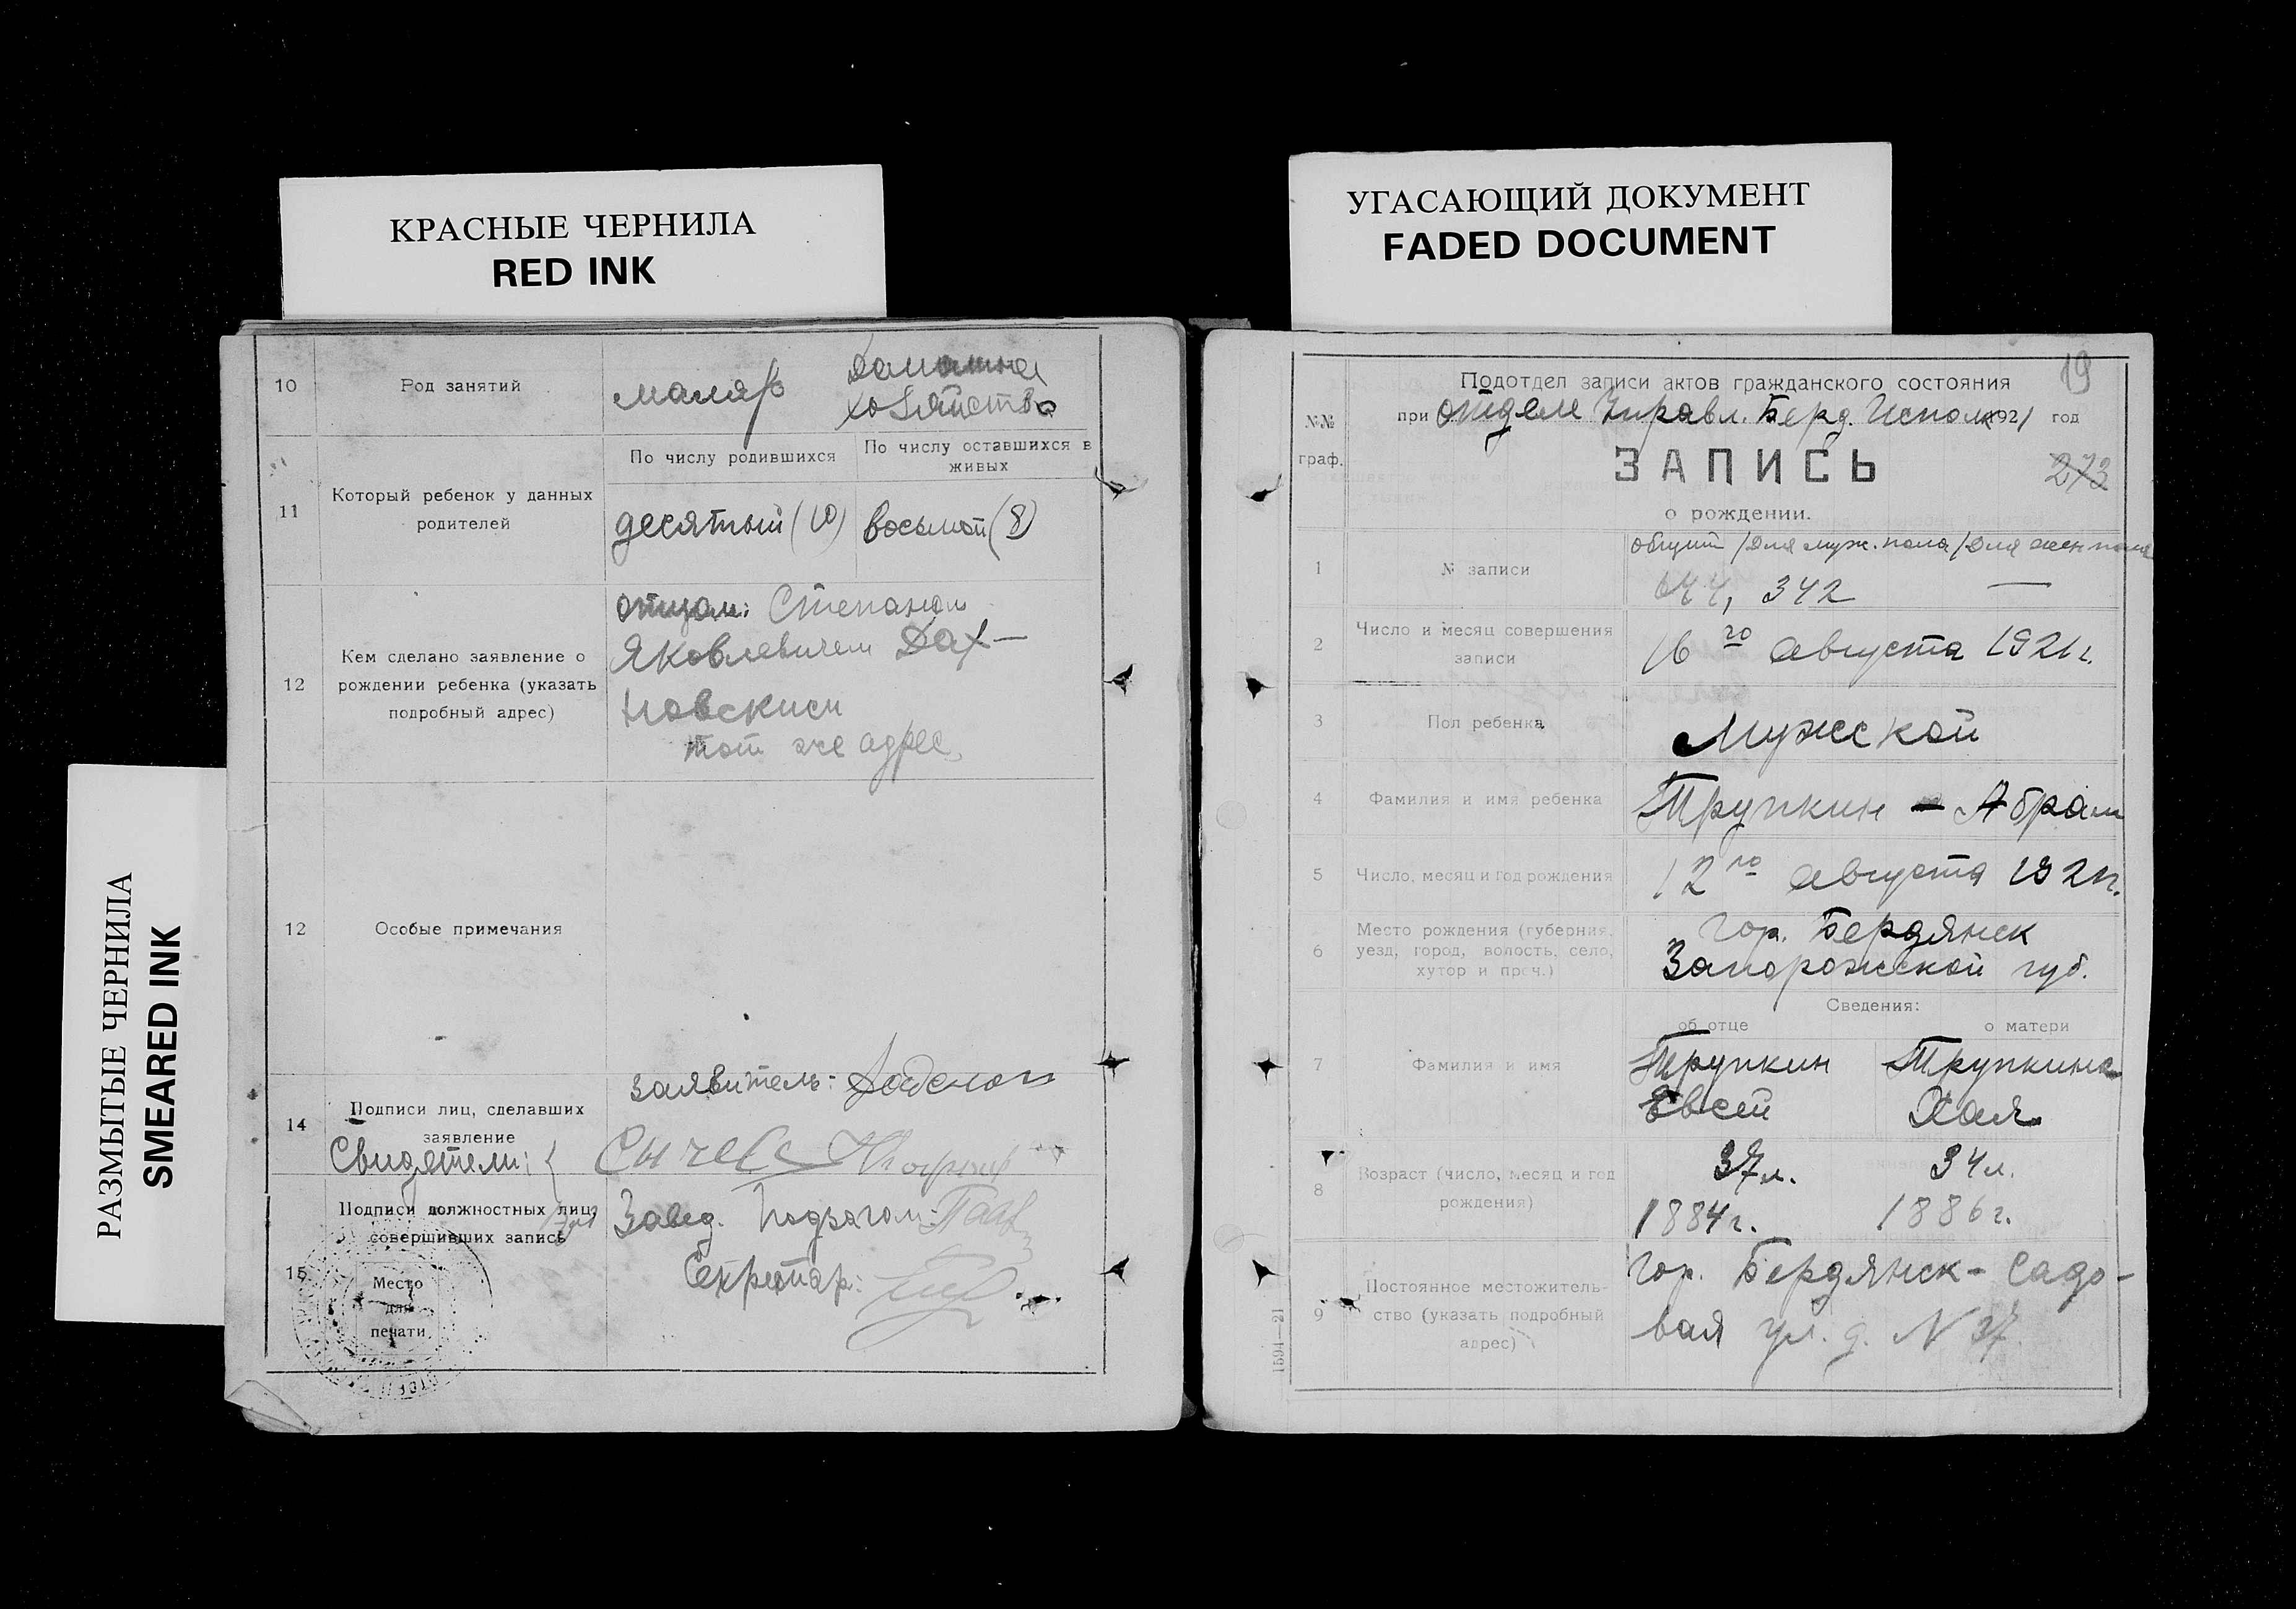 КРАСНЫЕ ЧЕРНИЛА
RED INK
УГАСАЮЩИЙ ДОКУМЕНТ
FADED DOCUMENT
РАЗМЫТЫЕ ЧЕРНИЛА
SMEARED INK
10
Род занятий
маляр
Домашнее
хозяйство
11
Который ребенок у данных
родителей
По числу родившихся
По числу оставшихся в
живых
десятый (10)
восьмой (8)
12
Кем сделано заявление о
рождении ребенка (указать
подробный адрес)
отцом: Степаном
Яковлевичем Дах-
новским
тот же адрес
12
Особые примечания
14
Подписи лиц, сделавших
заявление
Заявитель:
Свидетели:
15
Подписи должностных лиц,
совершивших запись
Место
для
печати
Завед. Подотдом:
Секретар:
19
№№
граф.
Подотдел записи актов гражданского состояния
при отделе Управл. Берд. Исполк 1921 год
ЗАПИСЬ
273
о рождении.
1
№ записи
общий / для муж. пола / для жен пола
644, 342 —
2
Число и месяц совершения
записи
16го августа 1921 г.
3
Пол ребенка
Мужской
4
Фамилия и имя ребенка
Трупкин - Абрам
5
Число, месяц и год рождения
12го августа 1921 г.
6
Место рождения (губерния,
уезд, город, волость, село,
хутор и проч.)
гор. Бердянск
Запорожской губ.
Сведения:
об отце
о матери
7
Фамилия и имя
Трупкин
Евсей
Трупкина
Хая
8
Возраст (число, месяц и год
рождения)
37 л.
1884 г.
34 л.
1886 г.
9
Постоянное местожитель-
ство (указать подробный
адрес)
гор. Бердянск - Садо-
вая ул. д. N 37.
1591—21